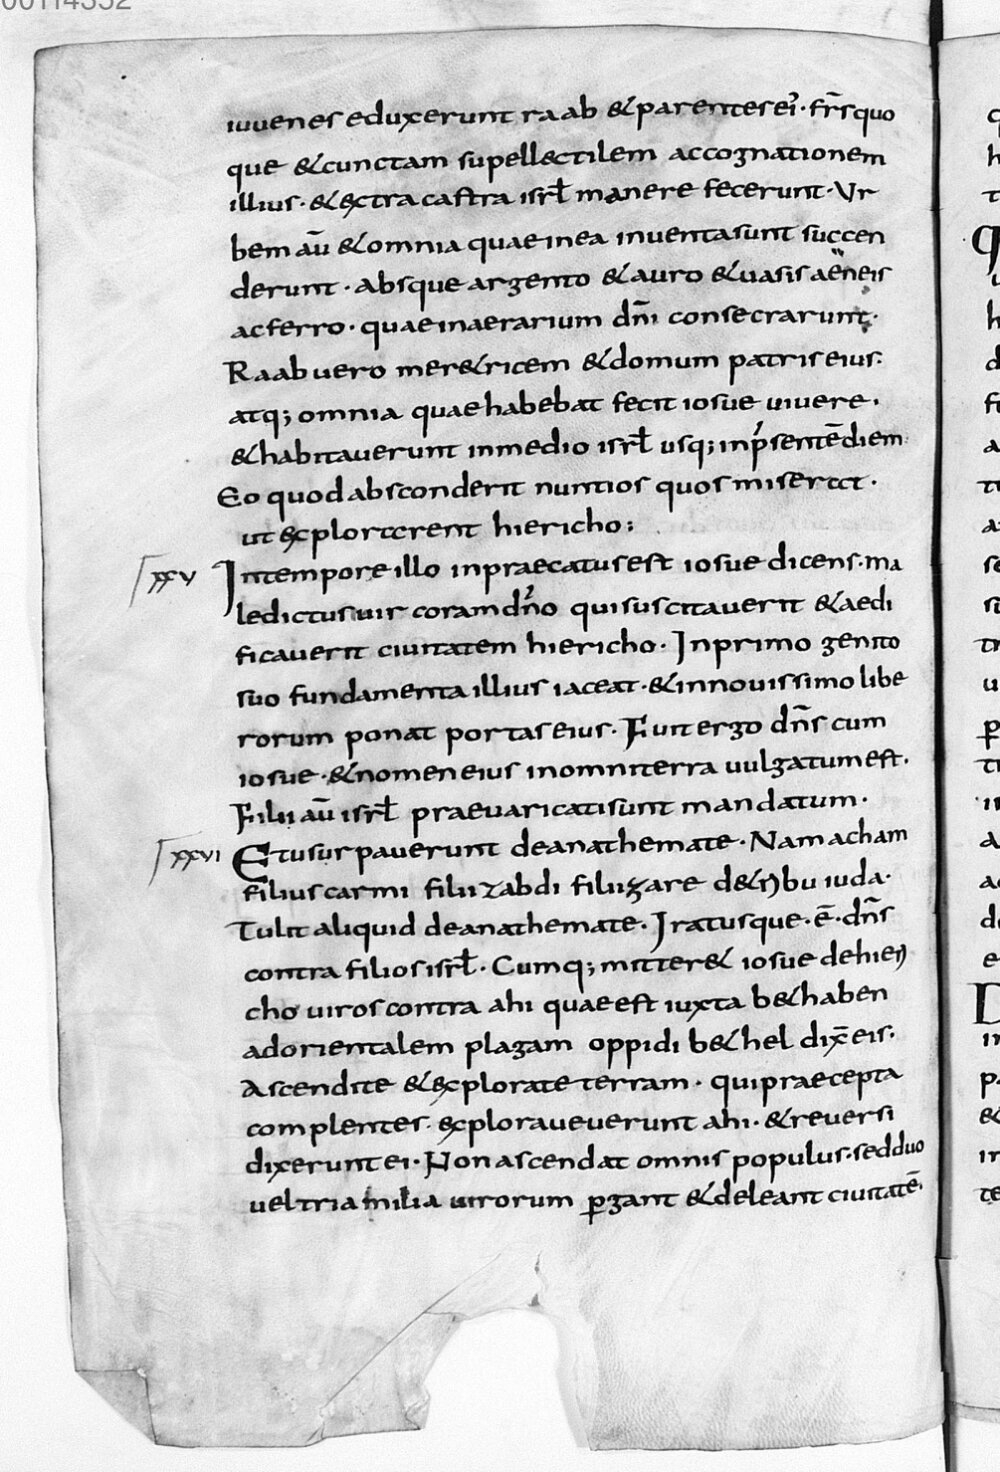 00114332
iuuenes eduxerunt raab & parentes ei᾽· fr̄s quo
que & cunctam supellectilem ac cognationem
illius· & extra castra isrł manere fecerunt· Ur
bem aū & omnia quae in ea inuenta sunt succen
derunt· absque argento & auro & uasis aeneis
ac ferro· quae in aerarium dn̄i consecrarunt·
Raab uero mer&ricem & domum patris eius·
atq; omnia quae habebat fecit iosue uiuere·
& habitauerunt in medio isrł usq; in p'sentē diem·
Eo quod absconderit nuntios quos miserat·
ut explorarent hiericho;
XXV Intempore illo inpraecatus est iosue dicens· ma
ledictus uir coram dn̄o qui suscitauerit & aedi
ficauerit ciuitatem hiericho· In primo genito
suo fundamenta illius iaceat· & in nouissimo libe
rorum ponat portas eius· Fuit ergo dn̄s cum
iosue· & nomen eius in omni terra uulgatum est·
Filii aū isrł praeuaricati sunt mandatum·
XXVI Et usurpauerunt de anathemate· Nam acham
filius carmi filii zabdi filii zare de tribu iuda·
Tulit aliquid de anathemate· Iratusque· ē· dn̄s
contra filios isrł· Cumq; mitter& iosue de hieri
cho uiros contra ahi quae est iuxta b&hauen
ad orientalem plagam oppidi b&hel dix̄ eis·
Ascendite & explorate terram· qui praecepta
complentes· explorauerunt ahi· & reuersi
dixerunt ei· Non ascendat omnis populus· sed duo
uel tria milia uirorum pgant & deleant ciuitatē·